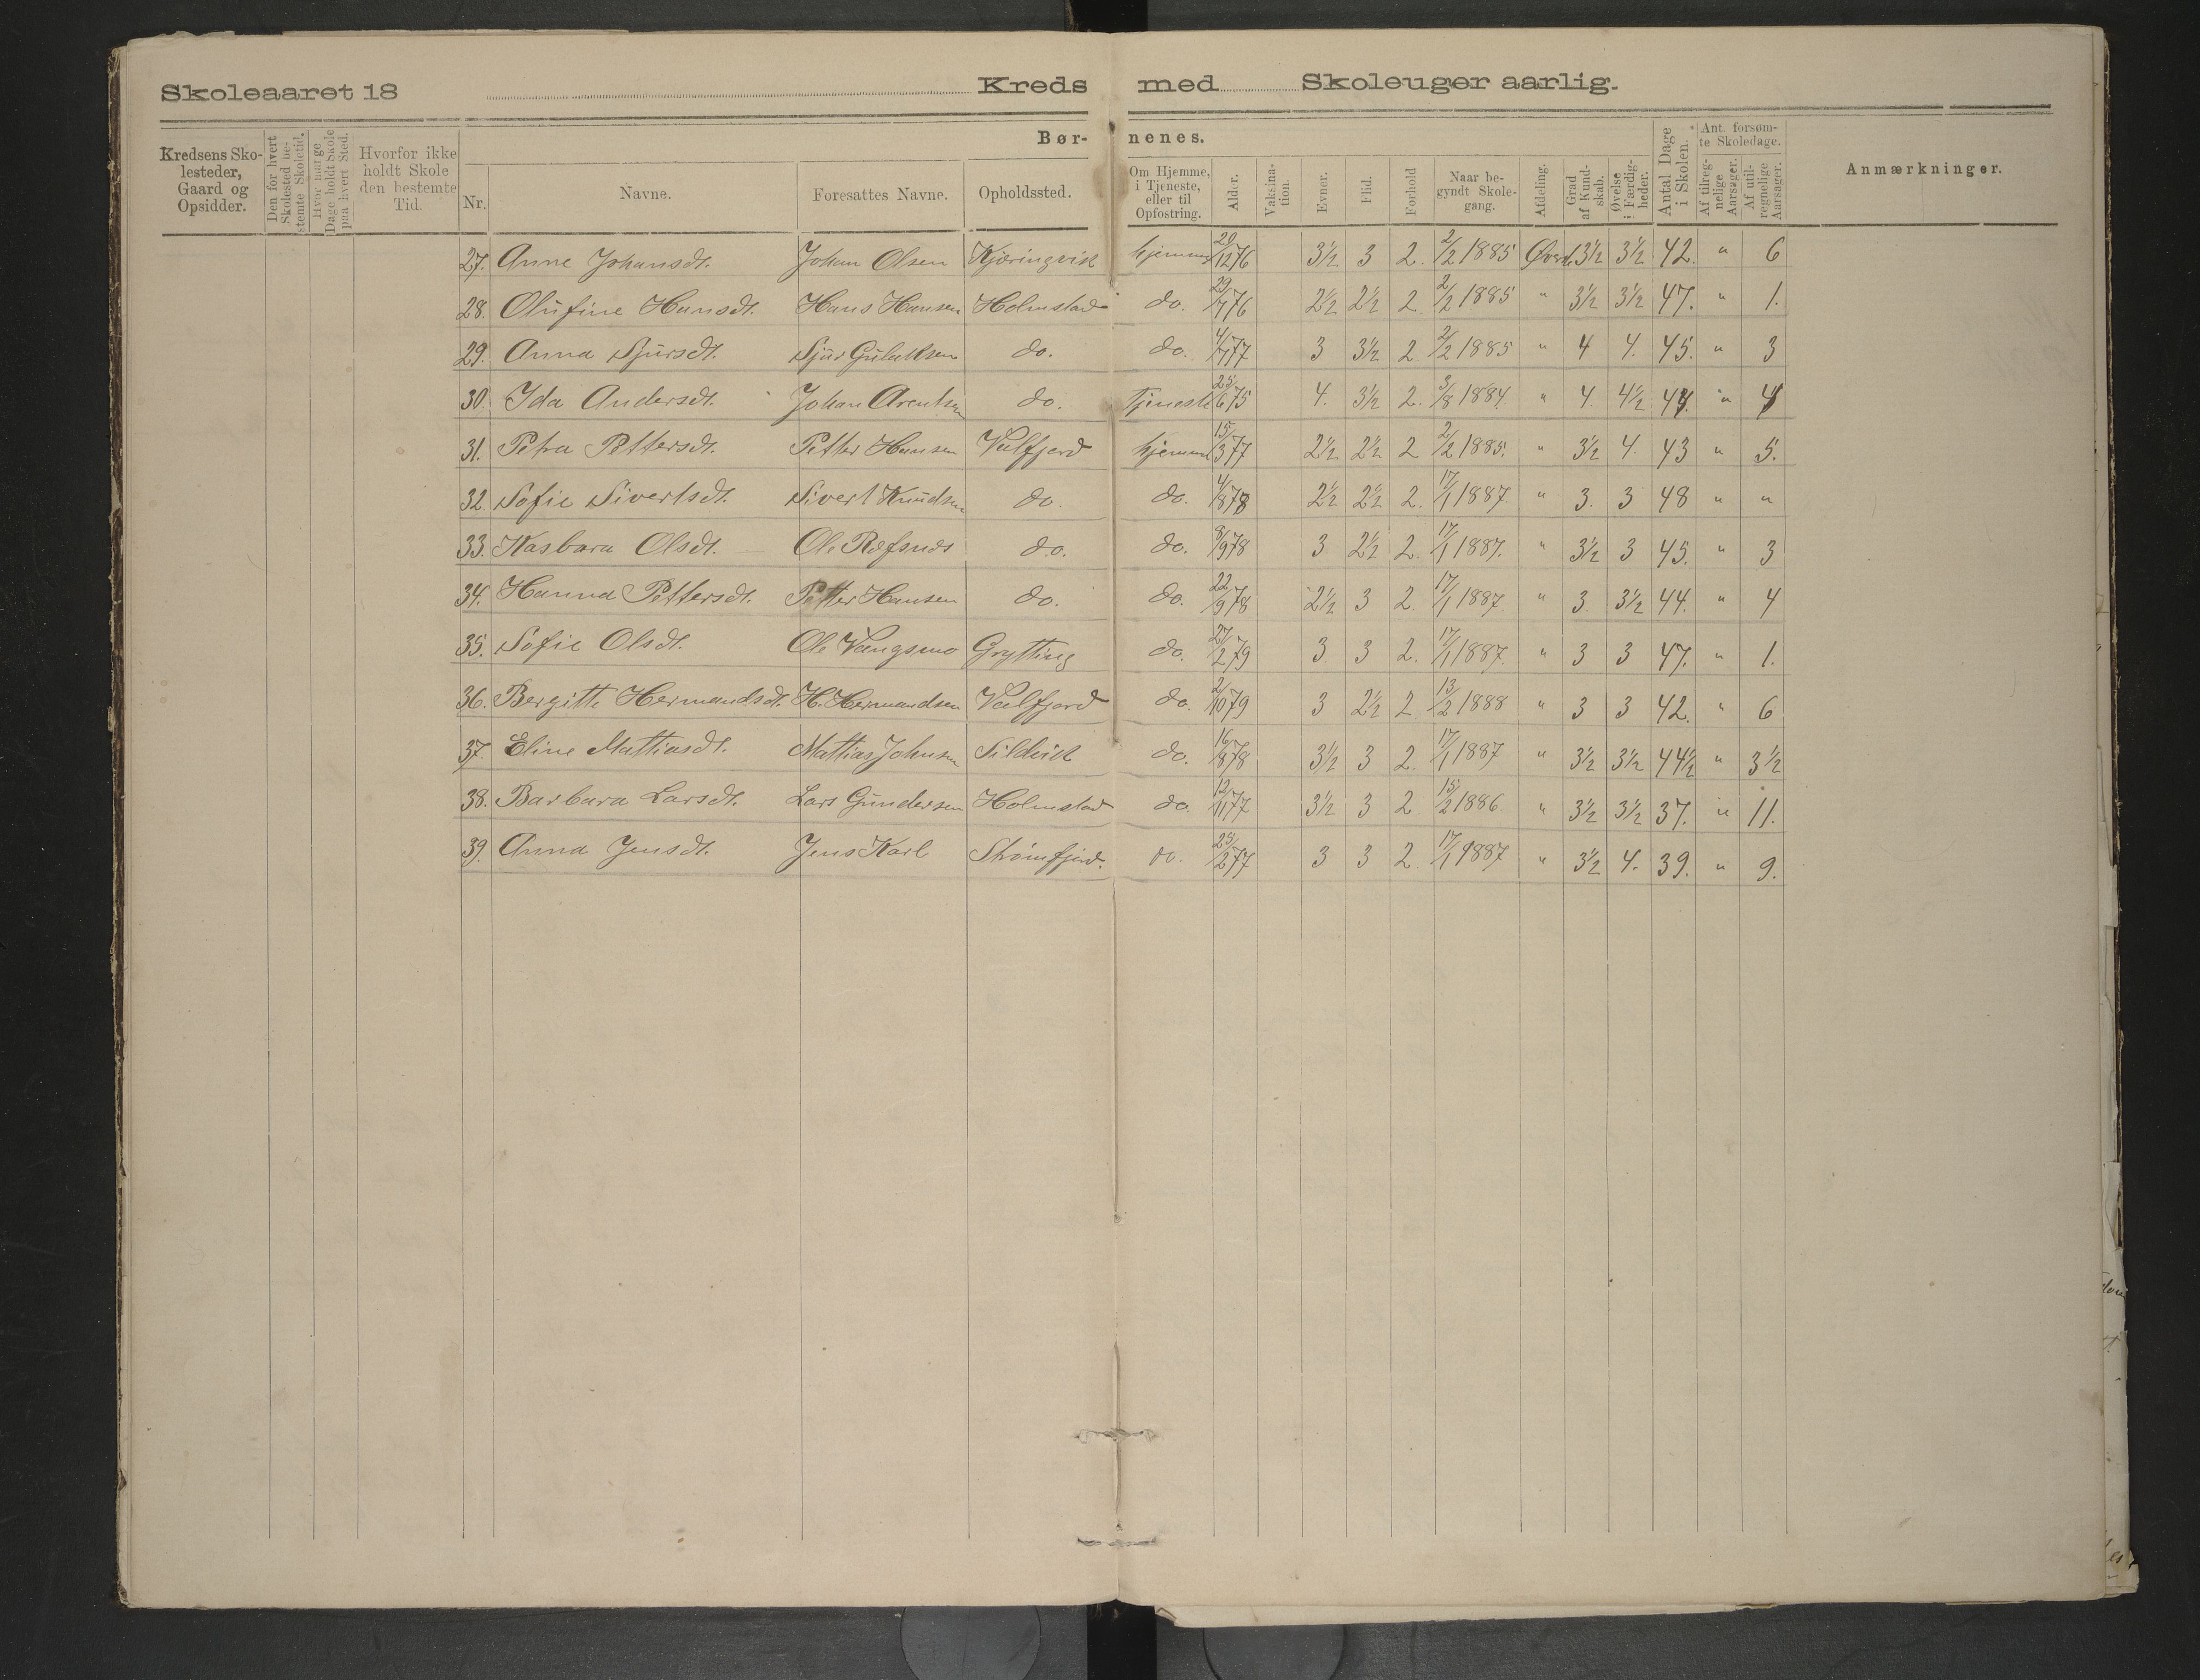 Skoleaaret 18 Kreds med Skoleuger aarlig.
Kredsens Sko-
lesteder,
Gaard og
Opsidder.
Den for hvert
Skolested be-
stemte Skoletid.
Hvor mange
Dage holdt Skole
paa hvert Sted.
Hvorfor ikke
holdt Skole
den bestemte
Tid.
Bør- nenes.
Nr.
Navne.
Foresattes Navne.
Opholdssted.
Om Hjemme,
i Tjeneste,
eller til
Opfostring.
Alder.
Vaksina-
tion.
Evner.
Flid.
Forhold
Naar be-
gyndt Skole-
gang.
Afdeling.
Grad
af Kund-
skab.
Øvelse
i Færdig-
heder.
Antal Dage
i Skolen.
Ant. forsøm-
te Skoledage.
Af tilreg-
nelige
Aarsager.
Af util-
regnelige
Aarsager.
Anmærkninger.
27. Anne Johansdt. Johan Olsen Kjæringvik hjemme 20/12 76 3½ 3 2. 2/2 1885 Øvde 3½ 3½ 42. " 6
28. Olufine Hansdt. Hans Hansen Holmstad do. 29/7 76 2½ 2½ 2 2/2 1885 " 3½ 3½ 47. " 1.
29. Anna Sjursdt. Sjur Gulaksen do. do. 4/7 77 3 3½ 2 2/2 1885 " 4 4. 45. " 3
30. Ida Andersdt. Johan Arentsen do. Tjeneste 25/6 75 4. 3½ 2. 3/8 1884. " 4. 4½ 44. " 4
31. Petra Pettersdt. Petter Hansen Valfjord hjemme 15/3 77 2½ 2½ 2 2/2 1885. " 3½ 4. 43 " 5.
32. Sofie Sivertsdt. Sivert Knudsen do. do. 4/8 78 2½ 2½ 2. 17/1 1887 " 3. 3 48 " "
33. Kasbara Olsdt. Ole Refsnes do. do. 8/9 78 3 2½ 2. 17/1 1887. " 3½ 3 45. " 3
34. Hanna Pettersdt. Petter Hansen do. do. 22/9 78 2½ 3 2. 17/1 1887 " 3 3½ 44. " 4
35. Sofie Olsdt. Ole Vangsmo Grytting do. 27/2 79 3 3 2. 17/1 1887. " 3 3 47. " 1.
36. Bergitte Hermandsdt. H. Hermandsen Valfjord do. 2/10 79 3 2½ 2 13/2 1888 " 3 3 42. " 6
37. Eline Mattiasdt. Mattias Johnsen Sildvik do. 16/8 78 3½ 3 2. 17/1 1887 " 3½ 3½ 44½ " 3½
38. Barbara Larsdt. Lars Gundersen Holmstad do. 12/11 77 3½ 3 2 15/2 1886 " 3½ 3½ 37. " 11.
39. Anna Jensdt. Jens Karl Strømfjord. do. 25/2 77 3 3 2. 17/1 1887 " 3½ 4. 39. " 9.